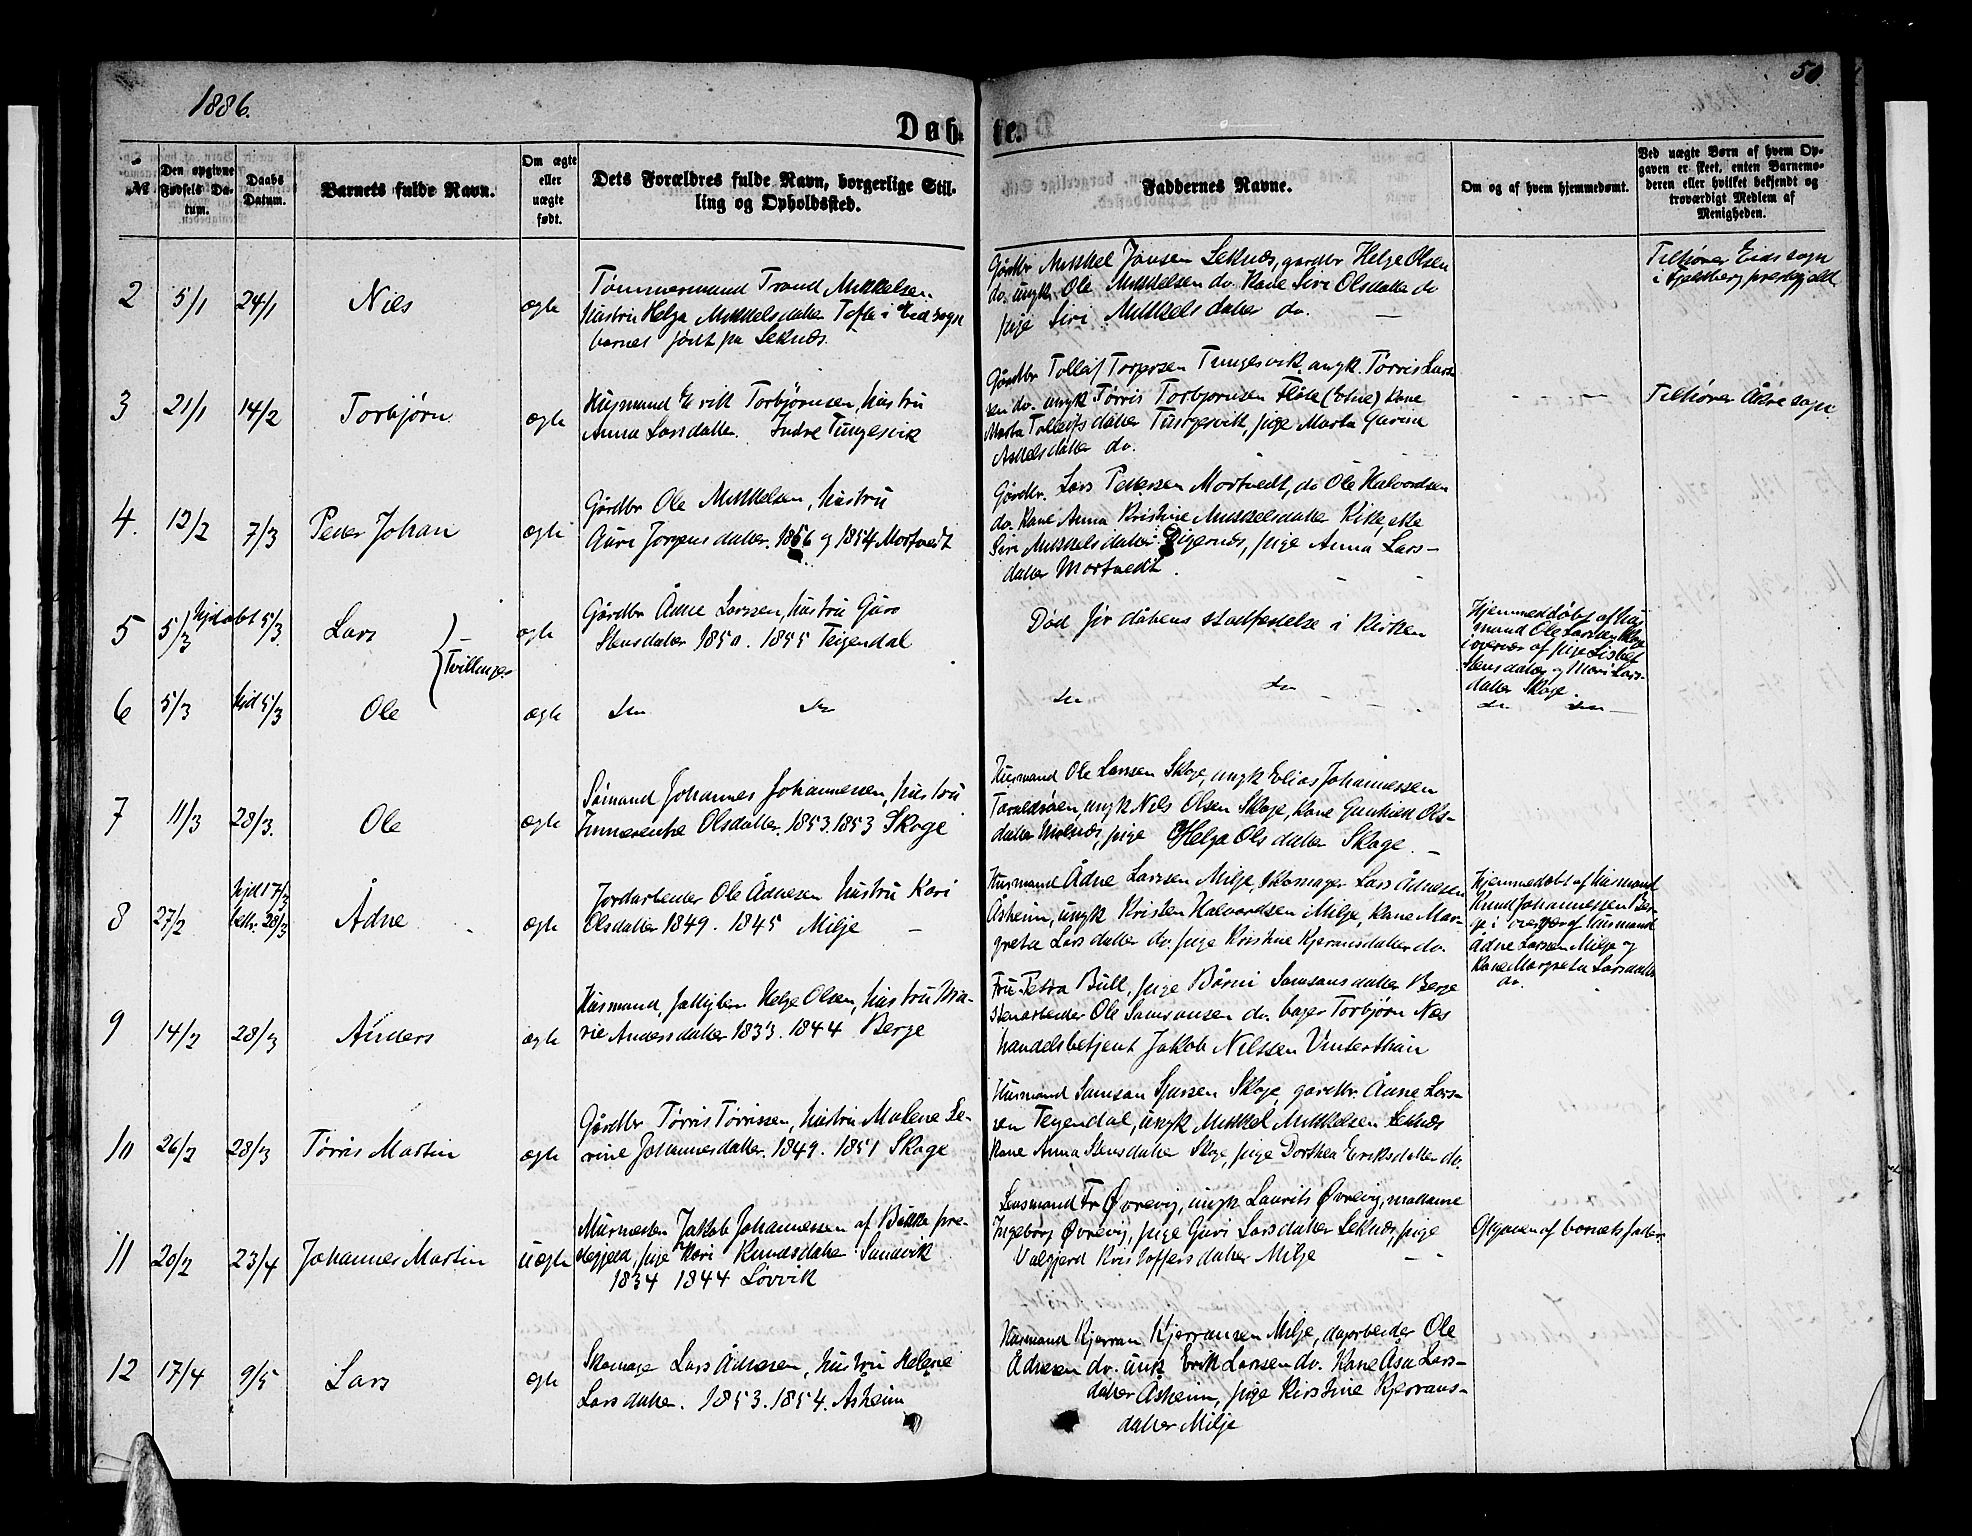 1886.
50.
Døb-
te.
№
Den opgivne Fødsels Datum.
Daabs Datum.
Barnets fulde Navn.
Om ægte eller uægte født.
Dets Forældres fulde Navn, borgerlige Stilling og Opholdssted.
Faddernes Navne.
Om og af hvem hjemmedømt.
Ved uægte Børn af hvem Opgaven er skeet, enten Barnemoderen eller hvilket bekjendt og troværdigt Medlem af Menigheden.
2 5/1 24/1 Nils ægte
Tømmermand Trond Mikkelsen,
hustru Helga Mikkelsdatter Tofte i Eid sogn
barnet født på Leknes.
Gårdbr Mikkel Jansen Leknes, gårdbr Helge Olsen
do. ungk Ole Mikkelsen do. Kone Siri Olsdatter do
pige Siri Mikkelsdatter do.
Tilhører Eids sogn
i Fjeldberg prestegjeld
3 21/1 14/2 Torbjørn ægte
Husmand Erik Torbjørnsen, hustru
Anna Larsdatter. Indre Tungesvik
Gårdbr Tolleif Torgersen Tungesvik, ungk. Tørris Lars-
sen do. ungk Tørris Torbjørnsen Fløte (Etne) Kone
Marta Tolleifsdatter Tungesvik, pige Marta Gurine
Askelsdatter do.
Tilhører Ådne sogn
4. 12/2 7/3 Peder Johan ægte
Gårdbr Ole Mikkelsen, hustru
Auri Jørgensdatter. 1856 og 1854 Mortvedt
Gårdbr. Lars Petersen Mortvedt, do Ole Halvordsen
do. Kone Anna Kristine Mikkelsdatter Kikke, ekke
Siri Mikkelsdatter Digernes, pige Anna Lars-
datter Mortvedt.
5 5/3 hjdøbt 5/3. Lars ægte
Tvillinger
Gårdbr Ådne Larssen, hustru Guro
Stensdatter 1850. 1855 Teigendal
Død før dåbens stadfestelse i kirken
Hjemmedøbt af hus-
mand Ole Larssen Skoge
i overvær af pige Lisbet
Stensdatter og Mari Lars-
datter Skoge.
6 5/3 hjd 5/3 Ole ægte
do do
do do
do do
7 11/3 28/3. Ole ægte
Sømand Johannes Johannessen, hustru
Innerentse Olsdatter. 1853. 1853 Skoge
Husmand Ole Larssen Skoge, ungk Elias Johannessen
ungk Nils Olsen Skoge, Kone Gunhild Ols-
datter Molnes, pige Helga Olsdatter Skoge.
8 27/2 hjd 17/3
bekr. 28/3 Ådne ægte
Jordarbeider Ole Ådnesen hustru Kari
Olsdatter 1849. 1845 Milje
Husmand Ådne Larssen Milje, skomager Lars Ådnesen
Åsheim, ungk Kristen Halvordsen Milje, Kone Mar-
greta Larsdatter do. pige Kristine Kjerransdatter do.
Hjemmedøbt af husmand
Knud Johannessen Ber-
ge i overvær af husmand
Ådne Larssen Milje og
Kone Margreta Larsdatter
do.
9 14/2 28/3 Anders ægte
Husmand, fattiglem Helge Olsen, hustru Ma-
rie Andersdatter 1833. 1844 Berge
Fru Petra Bull, pige Børni Samsonsdatter Berge
stenarbeider Ole Samsonsen do. bager Torbjørn Næs
handelsbetjent Jakob Nilssen Vinterthun
10 26/2 28/3 Tørris Martin ægte
Gårdbr Tørris Tørrissen, hustru Malene Se-
rine Johannesdatter. 1849. 1851 Skoge
Husmand Samson Sjursen Skoge, gårdbr. Ådne Lars-
sen Teigendal, ungk Mikkel Mikkelsen Leknes
Kone Anna Stensdatter Skoge, pige Dorthea Eriksdatter do.
11 20/2 23/4 Johannes Martin uægte
Murmester Jakob Johannessen af Bakke pre-
stegjeld, pige Kari Knudsdatter Sandvik
1834 1844 Løvvik
Lensmand Fr Øvrevig, ungk Laurits Øvrevig, madame
Ingeborg Øvrevig, pige Guri Larsdatter Leknes, pige
Valgjerd Kristoffersdatter Milje
Opgaven af barnets fader
12 17/4 9/5 Lars ægte
Skomager Lars Ådnesen, hustru Helene
Larsdatter. 1853. 1854. Åsheim
Husmand Kjerran Kjerransen Milje, dagarbeider Ole
Ådnesen do. ungk Erik Larssen do. Kone Åsa Lars-
datter Åsheim, pige Kirstine Kjerrans-
datter Milje